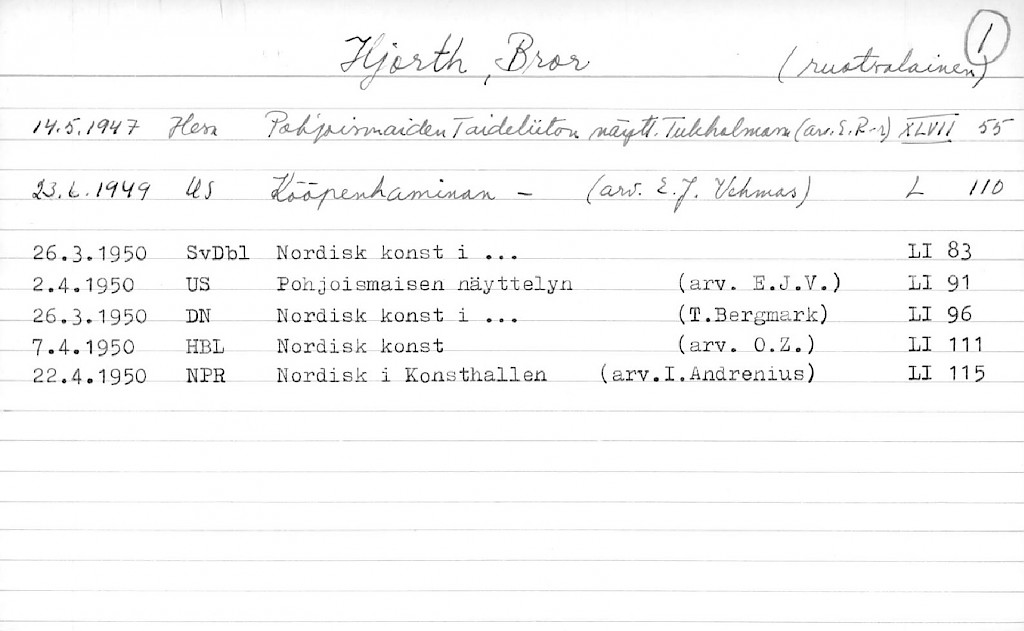 1
Hjorth, Bror (ruotsalainen)
14.5.1947 Hesa Pohjoismaiden Taideliiton näytt. Tukholmassa (arv. E.R-r) XLVII 55
23.6.1949 US Kööpenhaminan – (arv. E.J. Vehmas) L 110
26.3.1950 SvDbl Nordisk konst i ... LI 83
2.4.1950 US Pohjoismaisen näyttelyn (arv. E.J.V.) LI 91
26.3.1950 DN Nordisk konst i ... (T.Bergmark) LI 96
7.4.1950 HBL Nordisk konst (arv. O.Z.) LI 111
22.4.1950 NPR Nordisk i Konsthallen (arv.I.Andrenius) LI 115